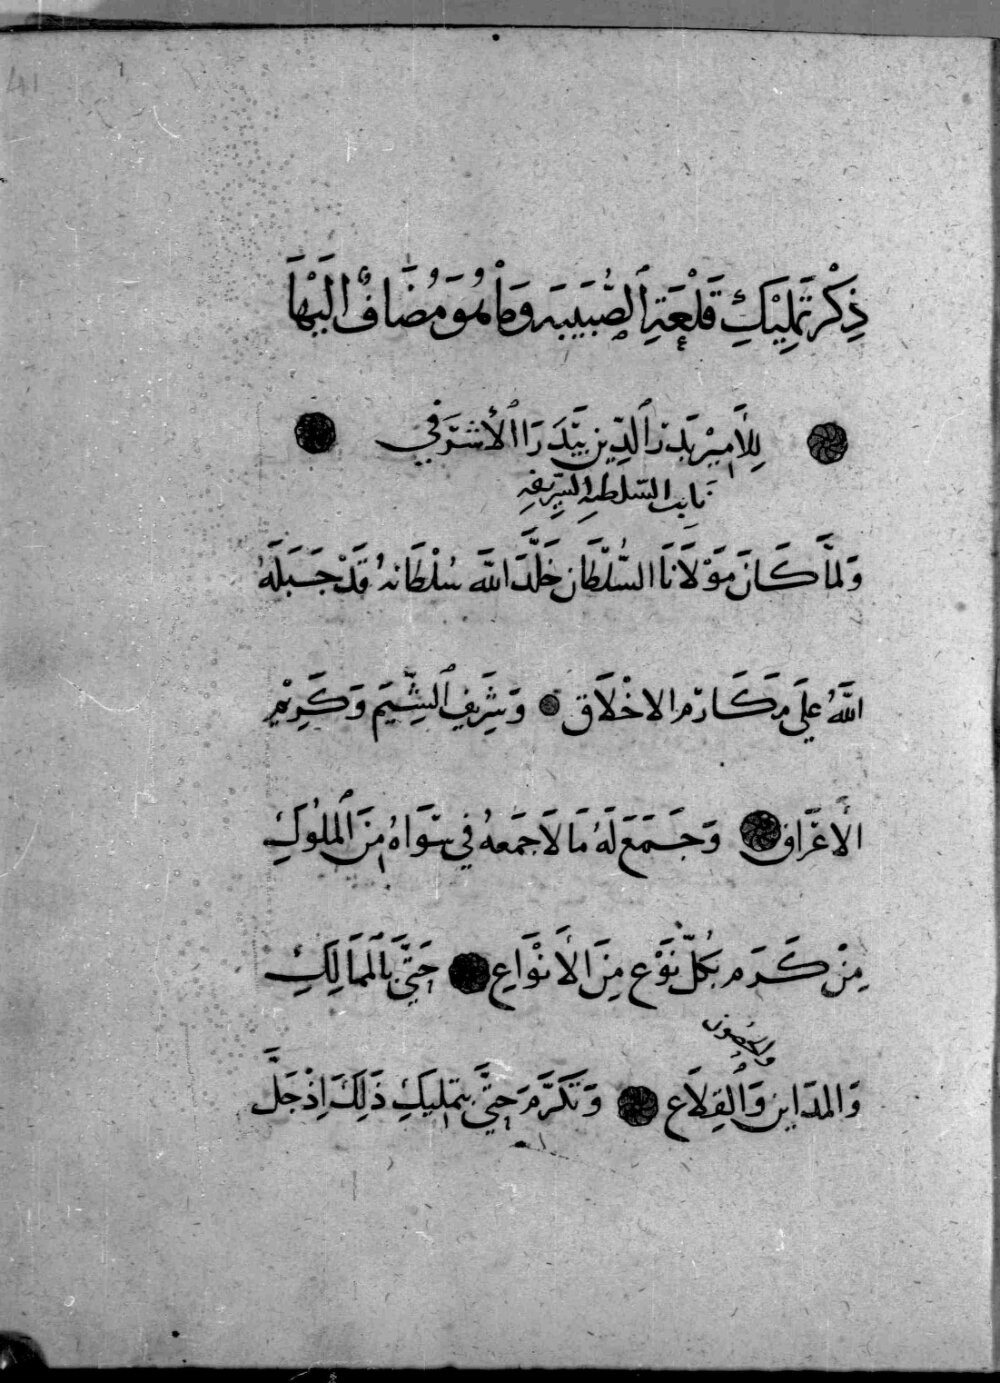 ذِكْرُ تَمْلِيْكِ قَلْعَةِ الصُّبَيْبَةِ وَمَا هُوَ مُضَافٌ الَيْهَا
لِلأَمِيْرِ بَدْرِ الدِّيْنِ بَيْدَرَا الأَشْرَفِي
نايب السلطنه الشريفه
وَلَمَّا كَانَ مَوْلَانَا السُّلْطَان خَلَّدَ اللَّه سُلْطَانهُ قَدْ جَبَلَهُ
اللَّهُ عَلَى مَكَارِم الاخْلَاق وَشَرِيفِ الشِّيَم وَكَرِيْم
الأَعْرَاق وَجَمَعَ لَهُ مَا لَا جَمَعهُ في سِوَاهُ مِنَ المُلُوكِ
مِنْ كَرَم بِكُلّ نَوْع مِنَ الأَنْوَاعِ حَتَّى بِالمَمَالِكِ
والحصون
وَالمدَاين وَالقِلَاع وَتَكَرَّمَ حَتَّى بِتَمْلِيكِ ذَلِكَ اِذْ جَلَّ